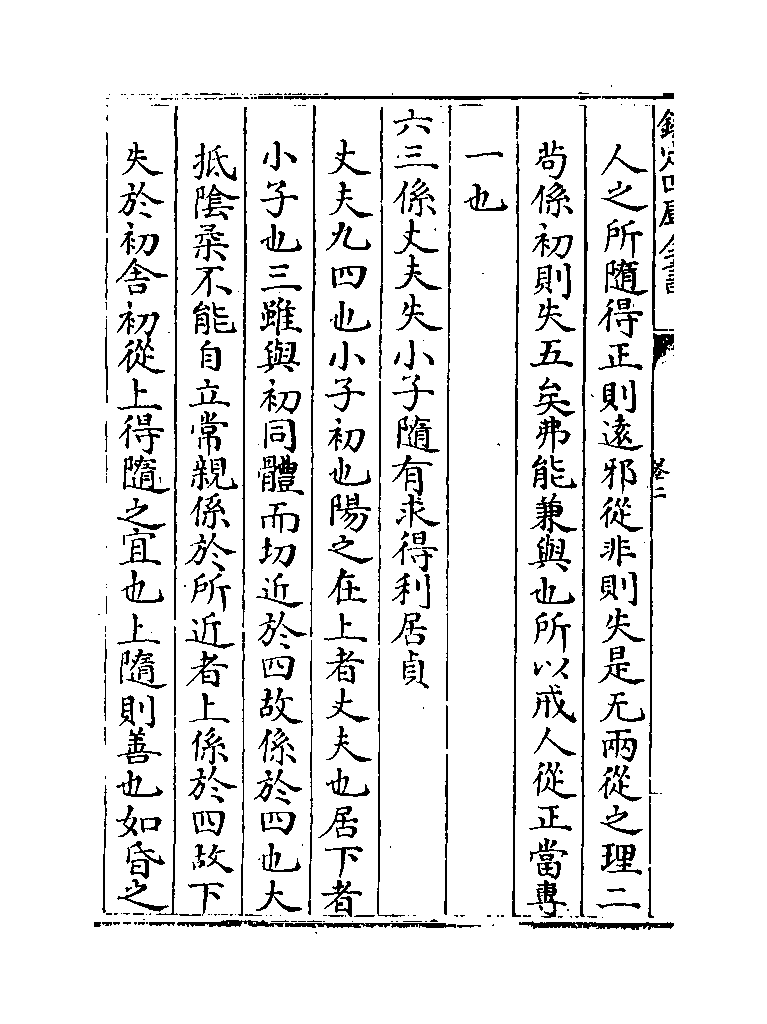 欽定四庫全書
卷二
人之所隨得正則遠邪從非則失是无兩從之理二
茍係初則失五矣弗能兼與也所以戒人從正當專
一也
六三係丈夫失小子隨有求得利居貞
丈夫九四也小子初也陽之在上者丈夫也居下者
小子也三雖與初同體而切近於四故係於四也大
抵陰柔不能自立常親係於所近者上係於四故下
失於初舍初從上得隨之宜也上隨則善也如昏之